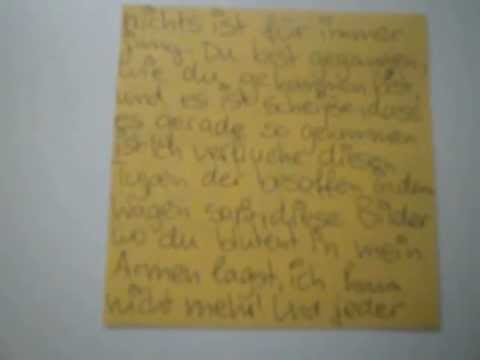 nichts ist für immer
jung. Du bist gegangen,
wie du gekommen bist,
und es ist scheiße, dass
es gerade so gekommen
ist. Ich verfluche diesen
Typen der besoffen in dem
Wagen saß, diese Bilder
wo du blutend in mein
Armen lagst, ich kann
nicht mehr! Und jeder